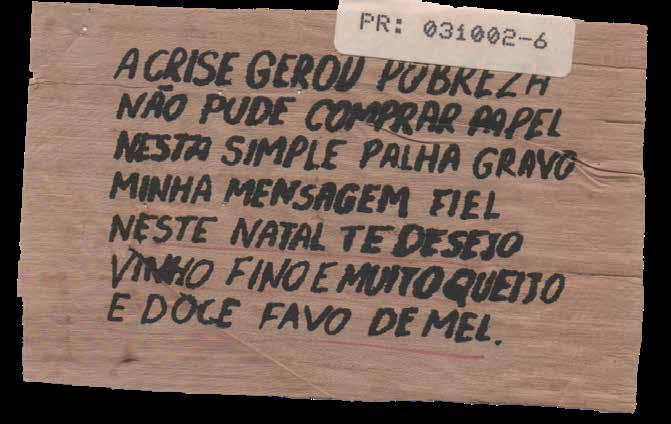 PR: 031002-6
A CRISE GEROU POBREZA
NÃO PUDE COMPRAR PAPEL
NESTA SIMPLE PALHA GRAVO
MINHA MENSAGEM FIEL
NESTE NATAL TE DESEJO
VINHO FINO E MUITO QUEIJO
E DOCE FAVO DE MEL.